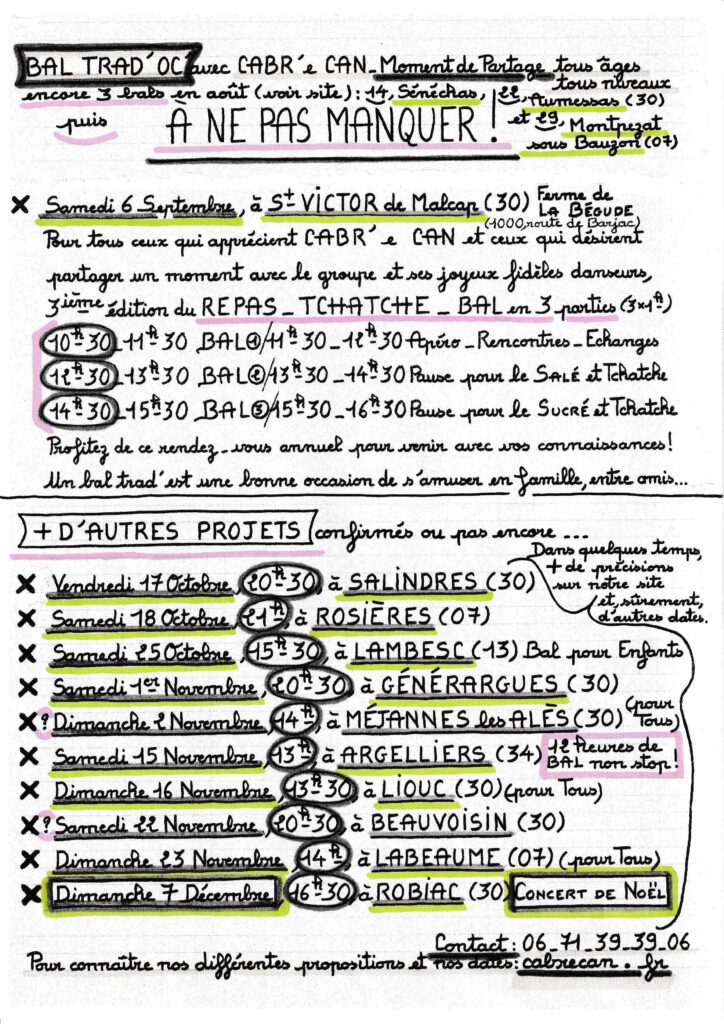 BAL TRAD'OC avec CABR'e CAN_Moment de Partage tous âges
tous niveaux
encore 3 bals en août (voir site) : 14, Sénéchas, 22, Aumessas (30)
et 29, Montpezat
sous Bauzon (07)
puis À NE PAS MANQUER !
x Samedi 6 Septembre, à St VICTOR de Malcap (30) Ferme de
LA BÉGUDE
(1000, route de Barjac)
Pour tous ceux qui apprécient CABR'e CAN et ceux qui désirent
partager un moment avec le groupe et ses joyeux fidèles danseurs,
3ième édition du REPAS_TCHATCHE_BAL en 3 parties (3x1h)
10h30_11h30 BAL① / 11h30_12h30 Apéro_Rencontres_Echanges
12h30_13h30 BAL② / 13h30_14h30 Pause pour le SALÉ et Tchatche
14h30_15h30 BAL③ / 15h30_16h30 Pause pour le SUCRÉ et Tchatche
Profitez de ce rendez-vous annuel pour venir avec vos connaissances !
Un bal trad' est une bonne occasion de s'amuser en famille, entre amis...
+ D'AUTRES PROJETS confirmés ou pas encore ...
Dans quelques temps,
+ de précisions
sur notre site
et, sûrement,
d'autres dates.
x Vendredi 17 Octobre, 20h30, à SALINDRES (30)
x Samedi 18 Octobre, 21h, à ROSIÈRES (07)
x Samedi 25 Octobre, 15h30, à LAMBESC (13) Bal pour Enfants
x Samedi 1er Novembre, 20h30, à GÉNÉRARGUES (30)
x ? Dimanche 2 Novembre, 14h, à MÉJANNES les ALÈS (30) (pour Tous)
x Samedi 15 Novembre, 13h, à ARGELLIERS (34) 12 heures de
BAL non stop !
x Dimanche 16 Novembre, 13h30, à LIOUC (30) (pour Tous)
x ? Samedi 22 Novembre, 20h30, à BEAUVOISIN (30)
x Dimanche 23 Novembre 14h, à LABEAUME (07) (pour Tous)
x Dimanche 7 Décembre, 16h30, à ROBIAC (30) CONCERT DE NOËL
Contact : 06_71_39_39_06
Pour connaître nos différentes propositions et nos dates : cabrecan.fr